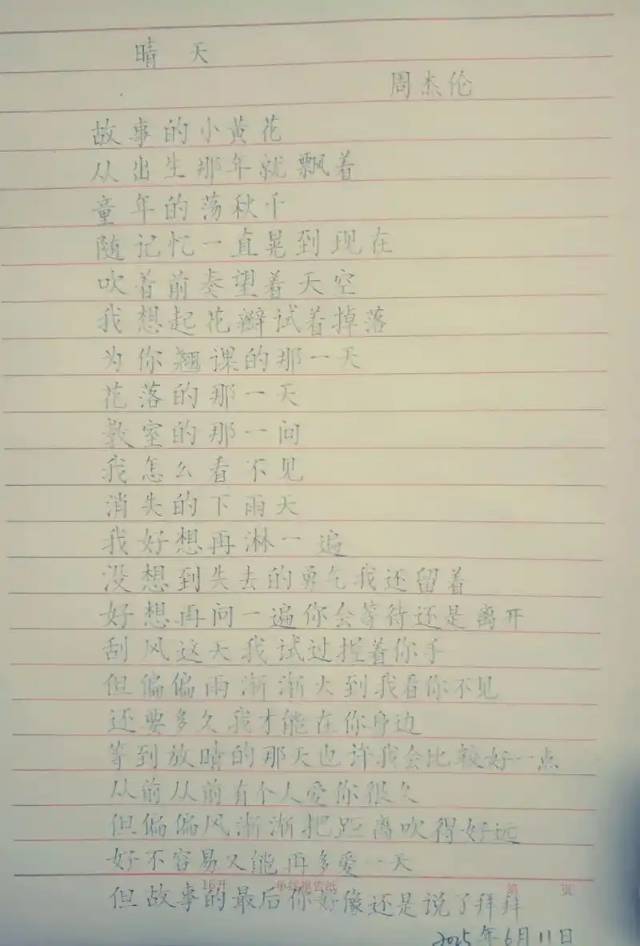 晴天
周杰伦
故事的小黄花
从出生那年就飘着
童年的荡秋千
随记忆一直晃到现在
吹着前奏望着天空
我想起花瓣试着掉落
为你翘课的那一天
花落的那一天
教室的那一间
我怎么看不见
消失的下雨天
我好想再淋一遍
没想到失去的勇气我还留着
好想再问一遍你会等待还是离开
刮风这天我试过握着你手
但偏偏雨渐渐大到我看你不见
还要多久我才能在你身边
等到放晴的那天也许我会比较好一点
从前从前有个人爱你很久
但偏偏风渐渐把距离吹得好远
好不容易又能再多爱一天
但故事的最后你好像还是说了拜拜
2025年6月11日